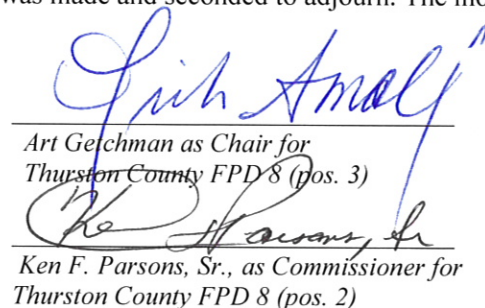 was made and seconded to adjourn. The mo
Art Getchman as Chair for
Thurston County FPD 8 (pos. 3)
Ken Parsons, Sr
Ken F. Parsons, Sr., as Commissioner for
Thurston County FPD 8 (pos. 2)